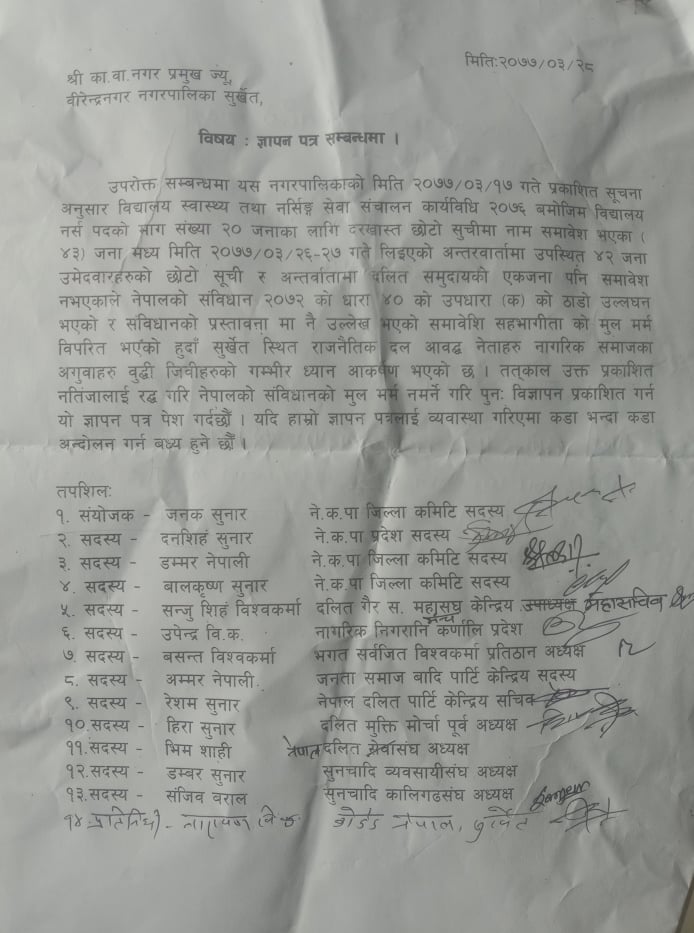 मिति:२०७७/०३/२८
श्री का.वा.नगर प्रमुख ज्यू,
वीरेन्द्रनगर नगरपालिका सुर्खेत,
विषय : ज्ञापन पत्र सम्बन्धमा ।
उपरोक्त सम्बन्धमा यस नगरपालिकाको मिति २०७७/०३/१७ गते प्रकाशित सूचना
अनुसार विद्यालय स्वास्थ्य तथा नर्सिङ्ग सेवा संचालन कार्यविधि २०७६ बमोजिम विद्यालय
नर्स पदको माग संख्या २० जनाका लागि दरखास्त छोटो सुचीमा नाम समावेश भएका (
४३) जना मध्य मिति २०७७/०३/२६-२७ गते लिइएको अन्तरवार्तामा उपस्थित ४२ जना
उमेदवारहरुको छोटो सूची र अन्तर्वातामा दलित समुदायकी एकजना पनि समावेश
नभएकाले नेपालको संविधान २०७२ को धारा ४० को उपधारा (क) को ठाडो उल्लघन
भएको र संविधानको प्रस्तावना मा नै उल्लेख भएको समावेशि सहभागीता को मुल मर्म
विपरित भएको हुदाँ सुर्खेत स्थित राजनैतिक दल आवद्ध नेताहरु नागरिक समाजका
अगुवाहरु वुद्धी जिवीहरुको गम्भीर ध्यान आकर्षण भएको छ । तत्काल उक्त प्रकाशित
नतिजालाई रद्ध गरि नेपालको संविधानको मुल मर्म नमर्ने गरि पुनः विज्ञापन प्रकाशित गर्न
यो ज्ञापन पत्र पेश गर्दछौँ । यदि हाम्रो ज्ञापन पत्रलाई व्यवास्था गरिएमा कडा भन्दा कडा
अन्दोलन गर्न बध्य हुने छौँ ।
तपशिल:
१. संयोजक - जनक सुनार ने.क.पा जिल्ला कमिटि सदस्य
२. सदस्य - दनशिहं सुनार ने.क.पा प्रदेश सदस्य
३. सदस्य - डम्मर नेपाली ने.क.पा जिल्ला कमिटि सदस्य
४. सदस्य - बालकृष्ण सुनार ने.क.पा जिल्ला कमिटि सदस्य
५. सदस्य - सन्जु शिहं विश्वकर्मा दलित गैर स. महासघ केन्द्रिय उपाध्यक्ष महासचिव
६. सदस्य - उपेन्द्र वि.क. नागरिक निगरानि कर्णालि प्रदेश
७. सदस्य - बसन्त विश्वकर्मा भगत सर्वजित विश्वकर्मा प्रतिठान अध्यक्ष
८. सदस्य - अम्मर नेपाली. जनता समाज बादि पार्टि केन्द्रिय सदस्य
९. सदस्य - रेशम सुनार नेपाल दलित पार्टि केन्द्रिय सचिव
१०.सदस्य - हिरा सुनार दलित मुक्ति मोर्चा पूर्व अध्यक्ष
११.सदस्य - भिम शाही नेपाल दलित अध्यक्ष
१२.सदस्य - डम्बर सुनार सुनचादि व्यवसायीसंघ अध्यक्ष
१३.सदस्य - संजिव वराल सुनचादि कालिगढसंघ अध्यक्ष
१४. प्रतिनिधी - नारायण वि.क. नेपाल, सुर्खेत